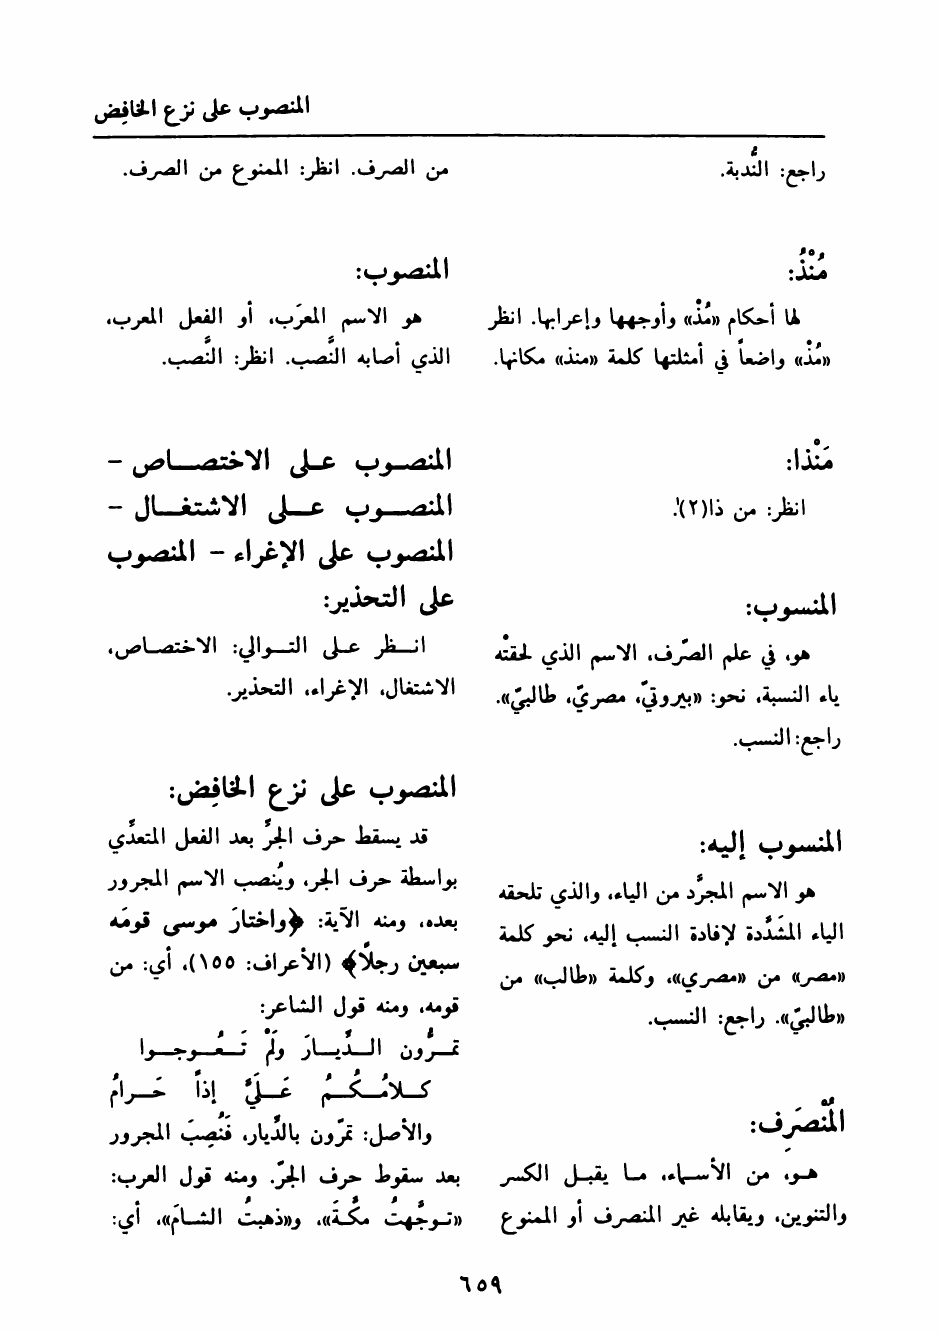 المنصوب على نزع الخافِض
راجع: النُّدبة.
مُنْذُ:
لها أحكام «مُذْ» وأوجهها وإعرابها. انظر
«مُذْ» واضعاً في أمثلتها كلمة «منذ» مكانها.
مَنْذا:
انظر: من ذا(٢).
المنسوب:
هو، في علم الصّرف، الاسم الذي لحقتْه
ياء النسبة، نحو: «بيروتيّ، مصريّ، طالبيّ».
راجع: النسب.
المنسوب إليه:
هو الاسم المجرَّد من الياء، والذي تلحقه
الياء المشَدَّدة لإفادة النسب إليه، نحو كلمة
«مصر» من «مصري»، وكلمة «طالب» من
«طالبيّ». راجع: النسب.
المُنْصَرِف:
هو، من الأسماء، ما يقبل الكسر
والتنوين، ويقابله غير المنصرف أو الممنوع
من الصرف. انظر: الممنوع من الصرف.
المنصوب:
هو الاسم المعرَب، أو الفعل المعرب،
الذي أصابه النَّصب. انظر: النَّصب.
المنصوب على الاختصاص –
المنصوب على الاشتغال –
المنصوب على الإغراء – المنصوب
على التحذير:
انظر على التوالي: الاختصاص،
الاشتغال، الإغراء، التحذير.
المنصوب على نزع الخافِض:
قد يسقط حرف الجرِّ بعد الفعل المتعدِّي
بواسطة حرف الجر، ويُنصب الاسم المجرور
بعده، ومنه الآية: ﴿واختارَ موسى قومَه
سبعين رجلاً﴾ (الأعراف: ١٥٥)، أي: من
قومه، ومنه قول الشاعر:
تمرُّون الدِّيارَ ولَمْ تَعُوجوا
كلامُكُمُ عَلَيَّ إذاً حَرامُ
والأصل: تمرّون بالدِّيار، فَنُصِبَ المجرور
بعد سقوط حرف الجرّ. ومنه قول العرب:
«توجَّهتُ مكَّةَ»، و«ذهبتُ الشامَ»، أي:
٦٥٩